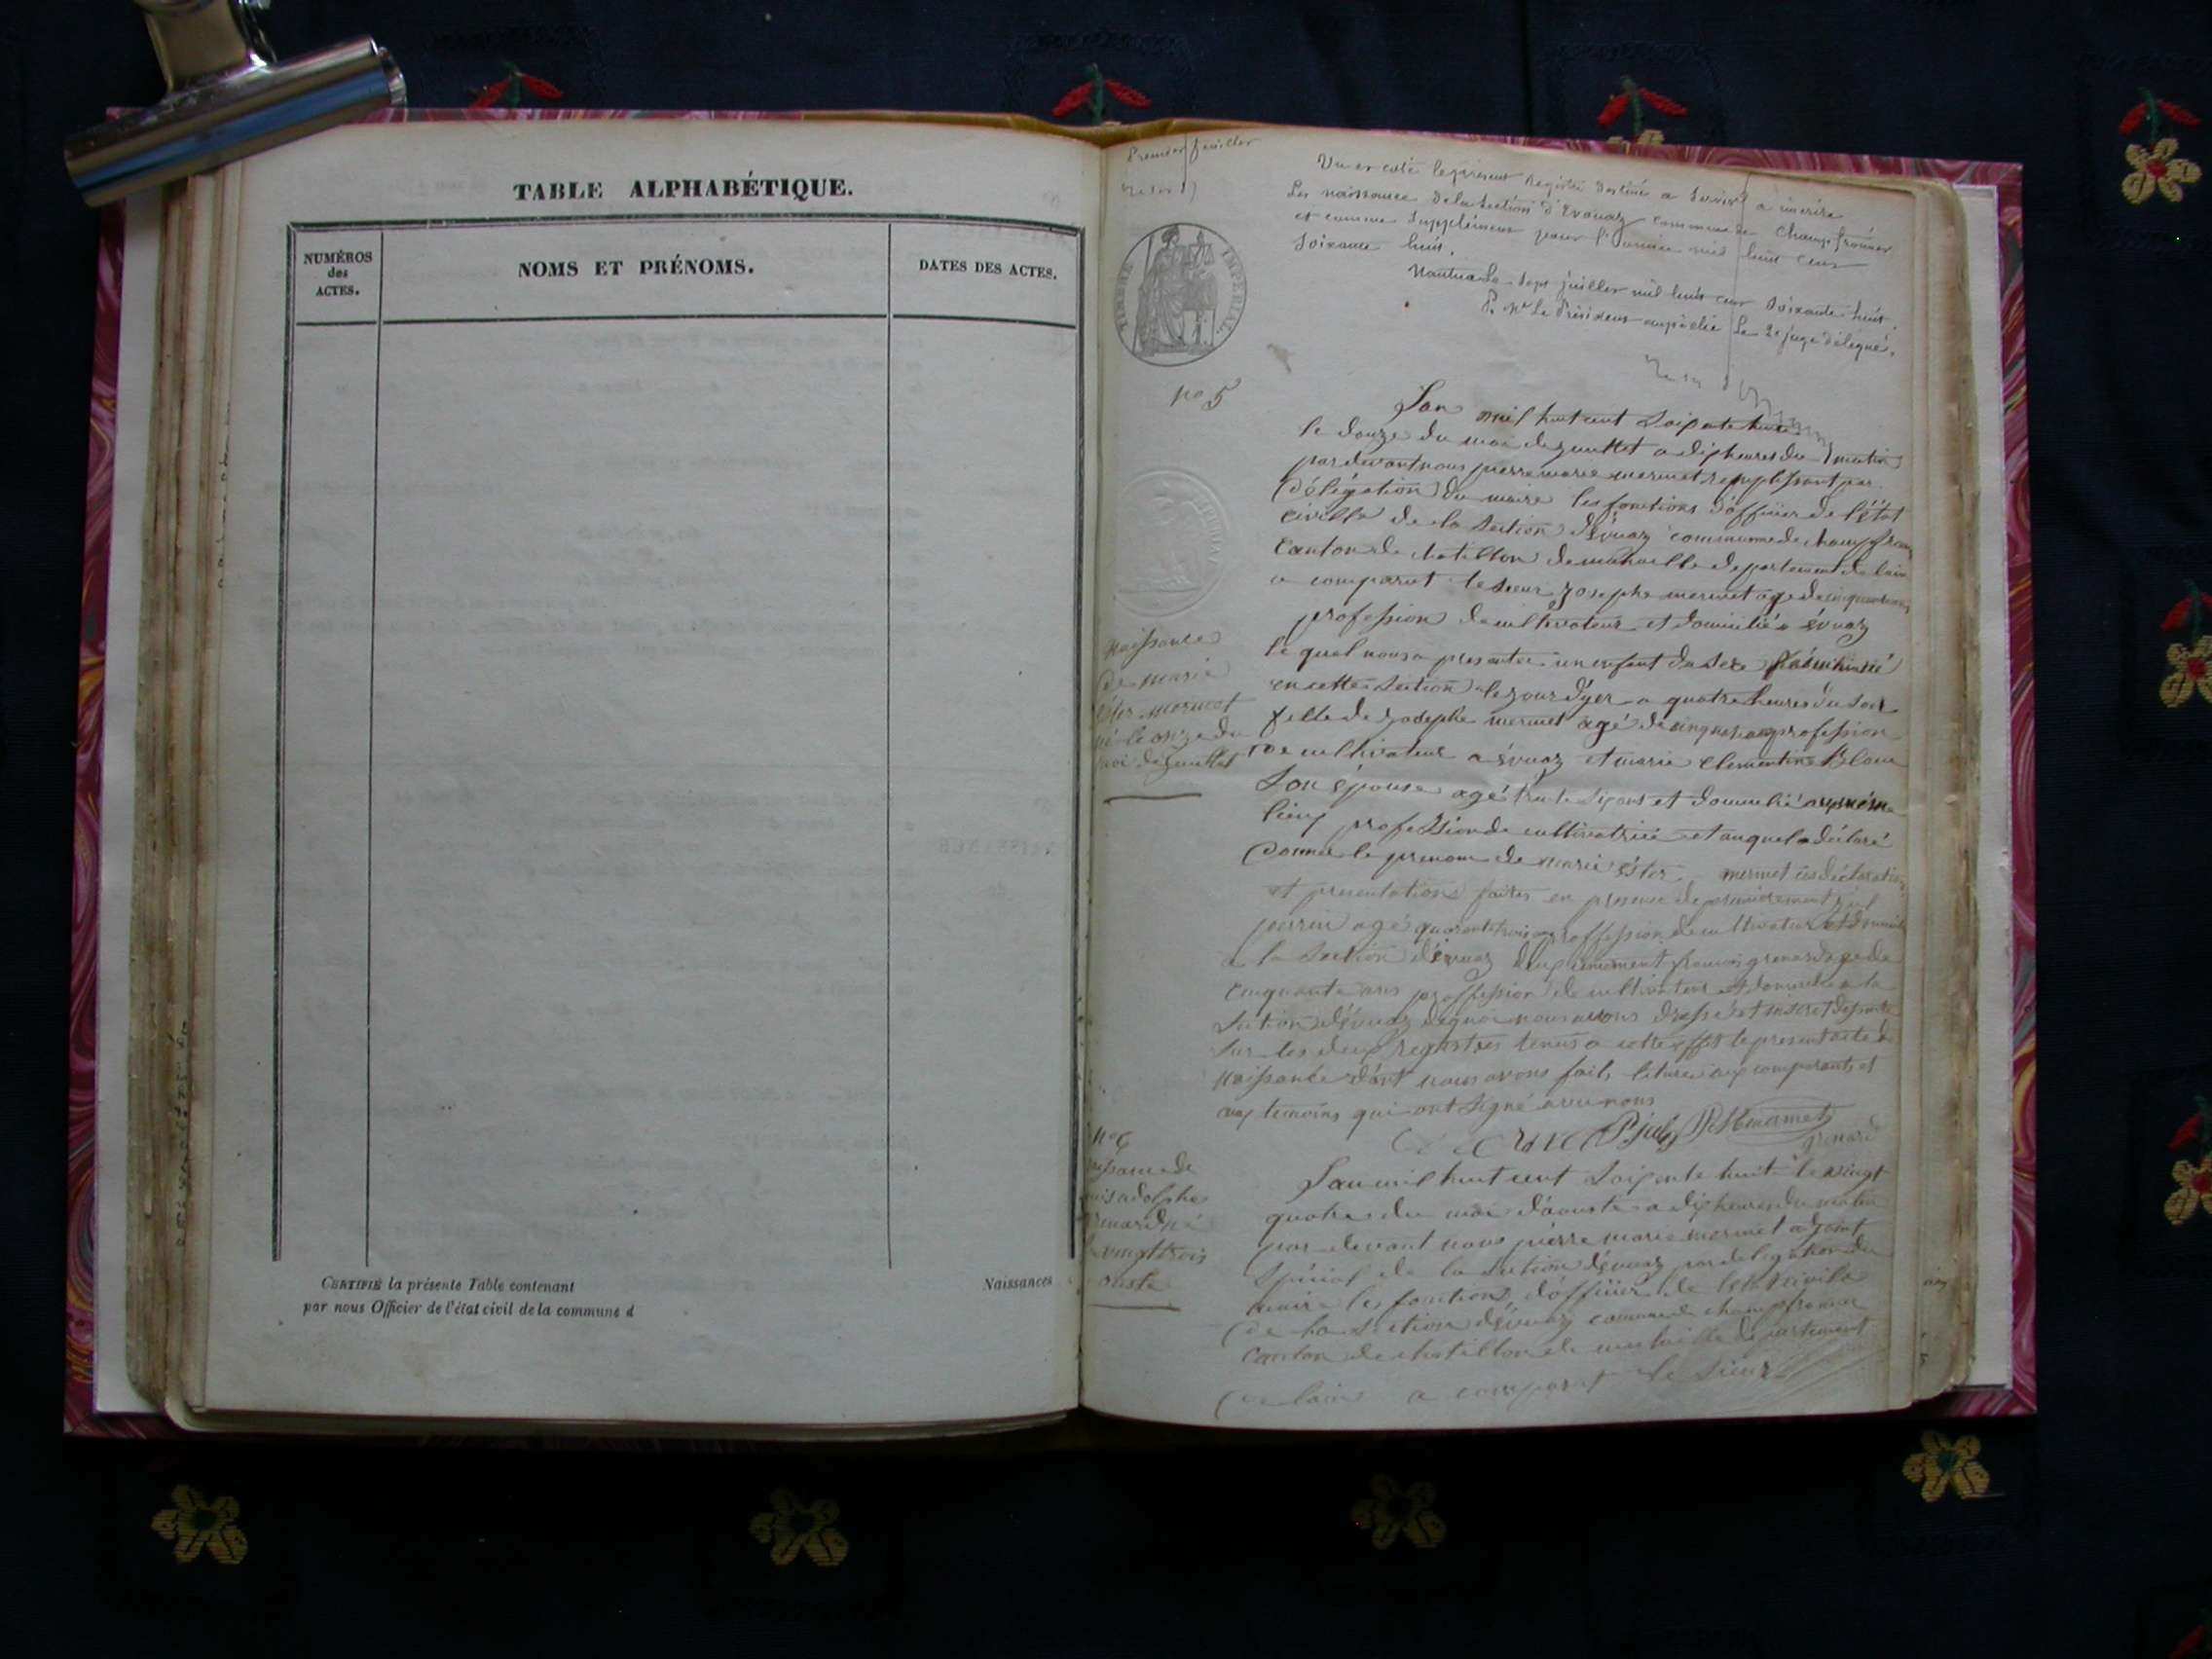 TABLE ALPHABÉTIQUE.
NUMÉROS
des
ACTES.
NOMS ET PRÉNOMS.
DATES DES ACTES.
CERTIFIÉ la présente Table contenant
Naissances
par nous Officier de l'état civil de la commune d
Premier feuillet
Vu et coté le présent registre destiné a servir a inscrire
Les naissances de la Section d'Evouaz commune de Champfromier
et comme Supplément pour l'année mil huit cent
Soixante huit.
Nantua Le Sept juillet mil huit cent Soixante huit.
P. Mr Le Président empêché Le 2e juge délégué.
TIMBRE IMPERIAL
no 5
Naissance
de marie
ester mermet
né le onze du
moi de juillet
Lan mil huit cent Soixante huit
le douze du moi de juullet a dix heures du matin
par devant nous pierre marie mermet remplissant par
délégation du maire les fonctions d'offiier de l'état
civille de la Section d'évuaz commune de champfrom
Canton de chatillon de michaille departement de lain
a comparut le Sieur Josephe mermet age de cinquante ans
profession de cultivateur et domicilié a évuaz
le quel nous a presentée un enfant du Sexe
en cette Section le jour d'yer a quatre heures du Soir
fille de Josephe mermet agé de cinquante ans profession
de cultivateur a évuaz et marie Clementine Blanc
Son épouse agé trente Six ans et domicilié au même
lieux profession de cultivatrice et auquel a déclaré
donner le prenom de marie éster mermet ces déclaration
et presentations faites en presence de premierement
perrin agé quarante trois ans proffession de cultivateur et domicilié
a la Section d'évuaz deuxiemement françois grenard age de
cinquante ans proffession de cultivateur et domicilié a la
Section d'évuaz dequoi nous avons dressé et inscret desuite
Sur les deux registres tenus a cette effet le present acte de
Naissance dont nous avons fait leture aux comparants et
aux temoins qui ont Signé avec nous
No 6
naissance de
adolphe
grenard né
vingt trois
ouste
Lan mil huit cent Soixante huit le vingt
quatre du moi d'aouste a dix heures du matin
par devant nous pierre marie mermet adjoint
Spécial de la Section d'évuaz par delegation du
maire les fonctions d'offiier de letat civile
de la Section d'évuaz commune champfromier
Canton de chatillon de michaille departement
de lain a comparut le Sieur